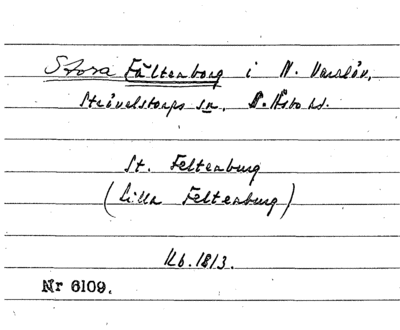 Stora Fältenborg i N. Varalöv,
Strövelstorps sn. S. Åsbo hd.
St. Feltenburg
(Lilla Feltenburg)
Kb. 1813.
Nr 6109.